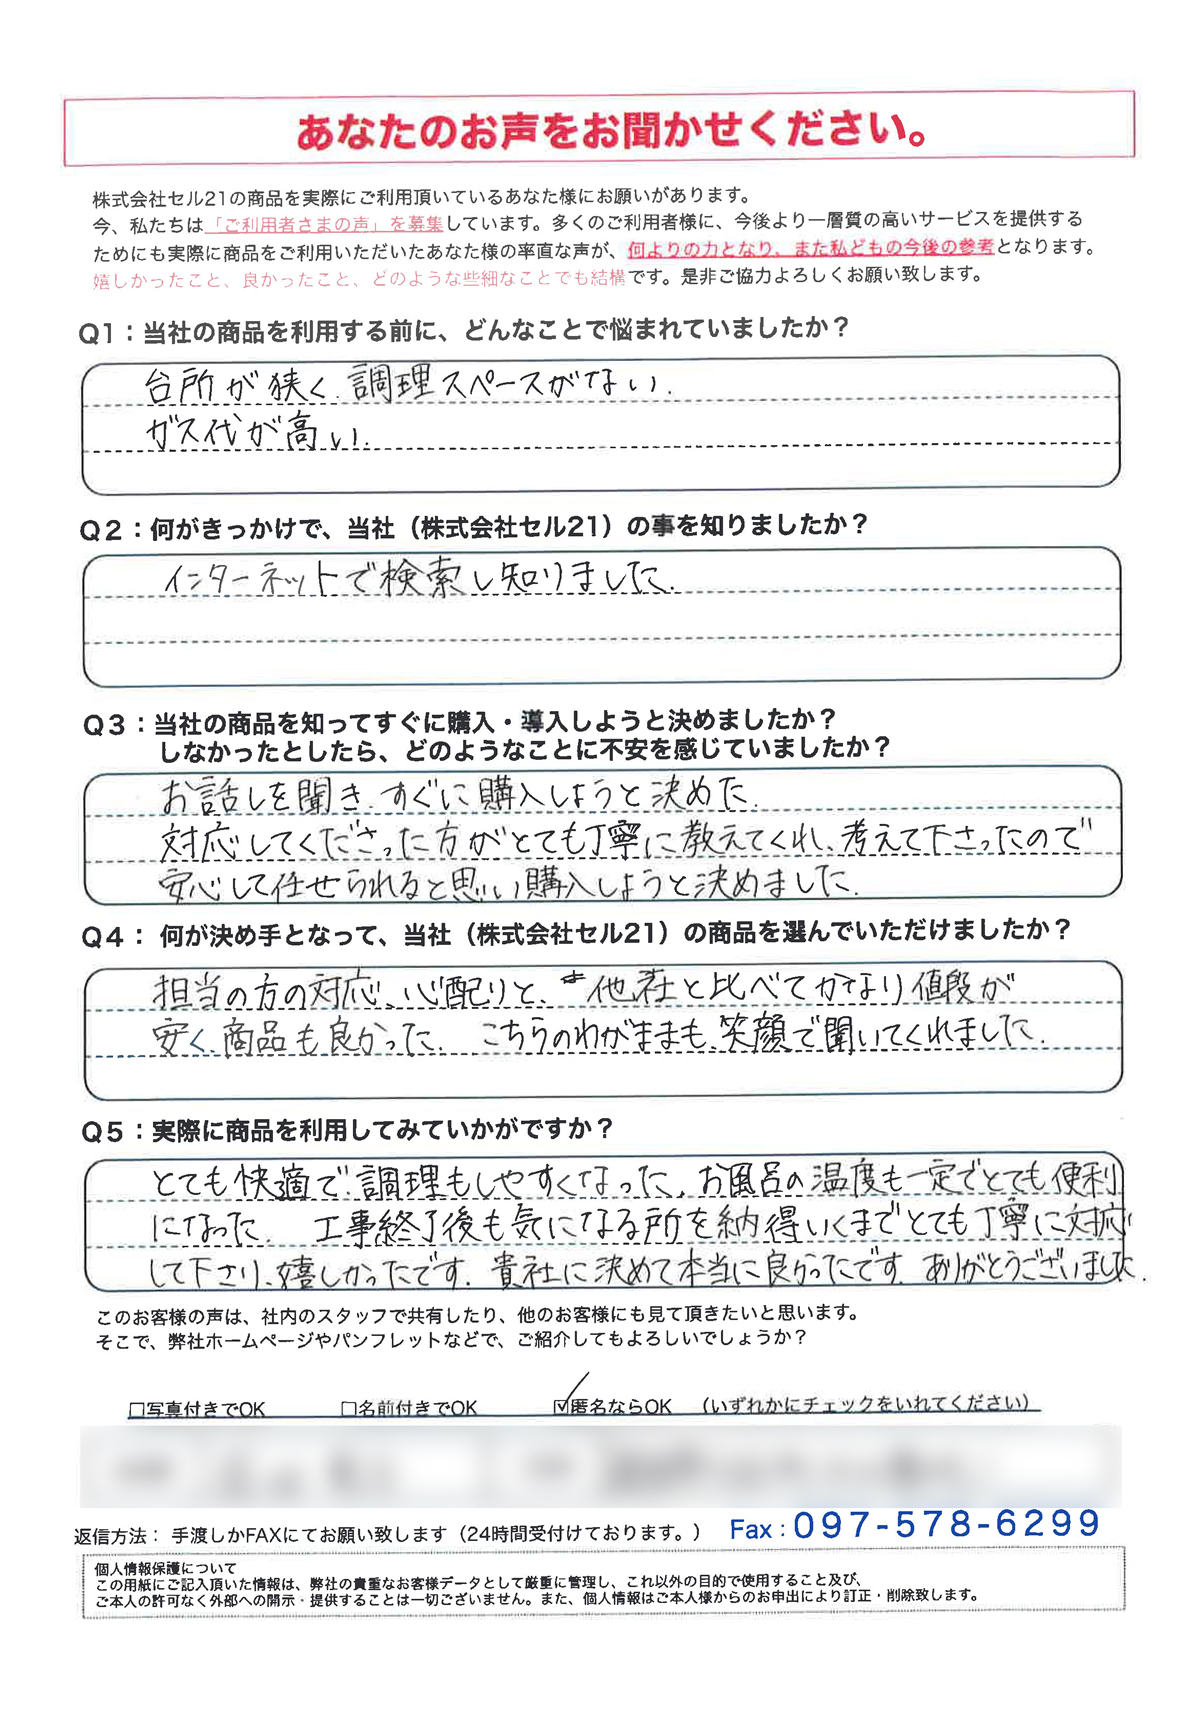 あなたのお声をお聞かせください。
株式会社セル21の商品を実際にご利用頂いているあなた様にお願いがあります。
今、私たちは「ご利用者さまの声」を募集しています。多くのご利用者様に、今後より一層質の高いサービスを提供する
ためにも実際に商品をご利用いただいたあなた様の率直な声が、何よりの力となり、また私どもの今後の参考となります。
嬉しかったこと、良かったこと、どのような些細なことでも結構です。是非ご協力よろしくお願い致します。
Q1：当社の商品を利用する前に、どんなことで悩まれていましたか？
台所が狭く、調理スペースがない。
ガス代が高い。
Q2：何がきっかけで、当社（株式会社セル21）の事を知りましたか？
インターネットで検索し知りました。
Q3：当社の商品を知ってすぐに購入・導入しようと決めましたか？
しなかったとしたら、どのようなことに不安を感じていましたか？
お話しを聞き、すぐに購入しようと決めた。
対応してくださった方がとても丁寧に教えてくれ、考えて下さったので
安心して任せられると思い購入しようと決めました。
Q4： 何が決め手となって、当社（株式会社セル21）の商品を選んでいただけましたか？
担当の方の対応、心配りと、他社と比べてかなり値段が
安く、商品も良かった。 こちらのわがままも、笑顔で聞いてくれました。
Q5：実際に商品を利用してみていかがですか？
とても快適で、調理もしやすくなった。お風呂の温度も一定でとても便利
になった。 工事終了後も気になる所を納得いくまでとても丁寧に対応
して下さり、嬉しかったです。貴社に決めて本当に良かったです。ありがとうございました。
このお客様の声は、社内のスタッフで共有したり、他のお客様にも見て頂きたいと思います。
そこで、弊社ホームページやパンフレットなどで、ご紹介してもよろしいでしょうか？
□写真付きでOK □名前付きでOK ☑匿名ならOK （いずれかにチェックをいれてください）
返信方法： 手渡しかFAXにてお願い致します（24時間受付けております。） Fax：097-578-6299
個人情報保護について
この用紙にご記入頂いた情報は、弊社の貴重なお客様データとして厳重に管理し、これ以外の目的で使用すること及び、
ご本人の許可なく外部への開示・提供することは一切ございません。また、個人情報はご本人様からのお申出により訂正・削除致します。